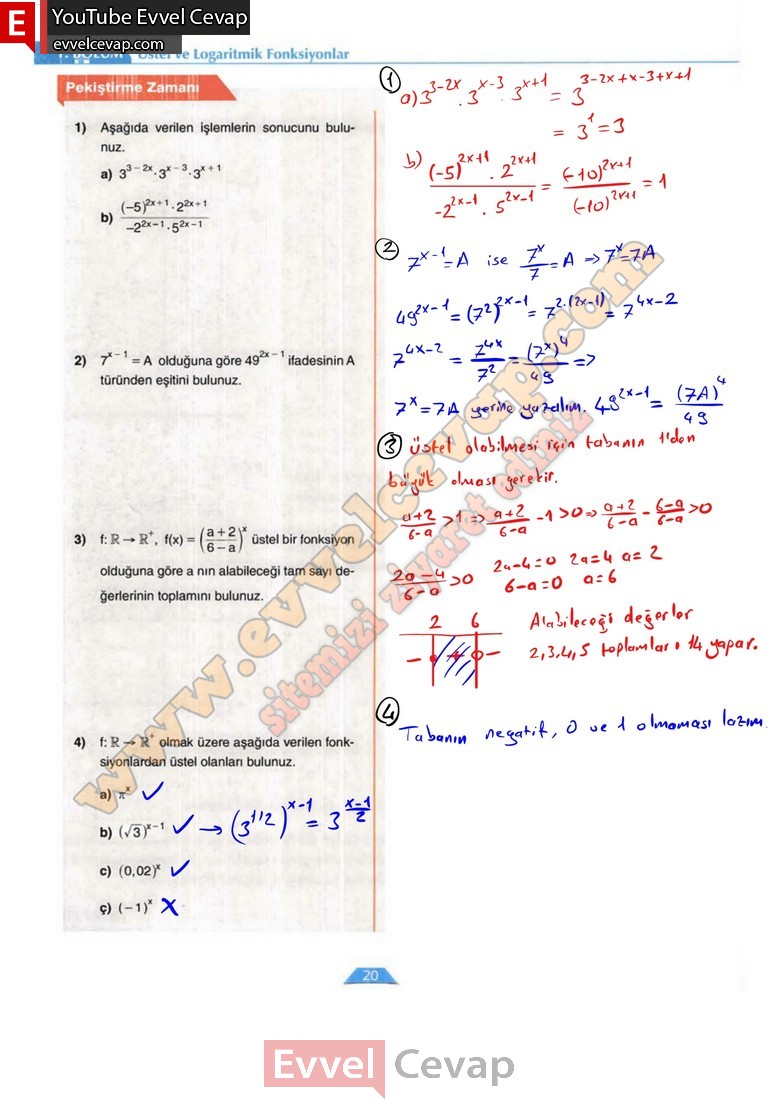 E YouTube Evvel Cevap
evvelcevap.com
1. BÖLÜM Üstel ve Logaritmik Fonksiyonlar
Pekiştirme Zamanı
1) Aşağıda verilen işlemlerin sonucunu bulu-
nuz.
a) 3^(3 – 2x) · 3^(x – 3) · 3^(x + 1)
b) (–5)^(2x+1) · 2^(2x+1) / –2^(2x–1) · 5^(2x–1)
2) 7^(x – 1) = A olduğuna göre 49^(2x – 1) ifadesinin A
türünden eşitini bulunuz.
3) f: ℝ → ℝ⁺, f(x) = ((a + 2)/(6 – a))^x üstel bir fonksiyon
olduğuna göre a nın alabileceği tam sayı de-
ğerlerinin toplamını bulunuz.
4) f: ℝ → ℝ⁺ olmak üzere aşağıda verilen fonk-
siyonlardan üstel olanları bulunuz.
a) π^x ✓
b) (√3)^(x – 1) ✓ → (3^(1/2))^(x-1) = 3^((x-1)/2)
c) (0,02)^x ✓
ç) (–1)^x X
① a) 3^(3-2x) · 3^(x-3) · 3^(x+1) = 3^(3-2x+x-3+x+1)
= 3^1 = 3
b) (-5)^(2x+1) · 2^(2x+1) / -2^(2x-1) · 5^(2x-1) = (-10)^(2x+1) / (-10)^(2x+1) = 1
② 7^(x-1) = A ise 7^x/7 = A ⇒ 7^x = 7A
49^(2x-1) = (7^2)^(2x-1) = 7^(2·(2x-1)) = 7^(4x-2)
7^(4x-2) = 7^(4x)/7^2 = (7^x)^4/49 ⇒
7^x = 7A yerine yazalım. 49^(2x-1) = (7A)^4/49
③ üstel olabilmesi için tabanın 1'den
büyük olması gerekir.
(a+2)/(6-a) > 1 ⇒ (a+2)/(6-a) - 1 > 0 ⇒ (a+2)/(6-a) - (6-a)/(6-a) > 0
(2a-4)/(6-a) > 0 2a-4=0 2a=4 a=2
6-a=0 a=6
2 6
- + -
Alabileceği değerler
2,3,4,5 toplamları 14 yapar.
④
Tabanın negatif, 0 ve 1 olmaması lazım.
www.evvelcevap.com
sitemizi ziyaret ediniz
20
Evvel Cevap